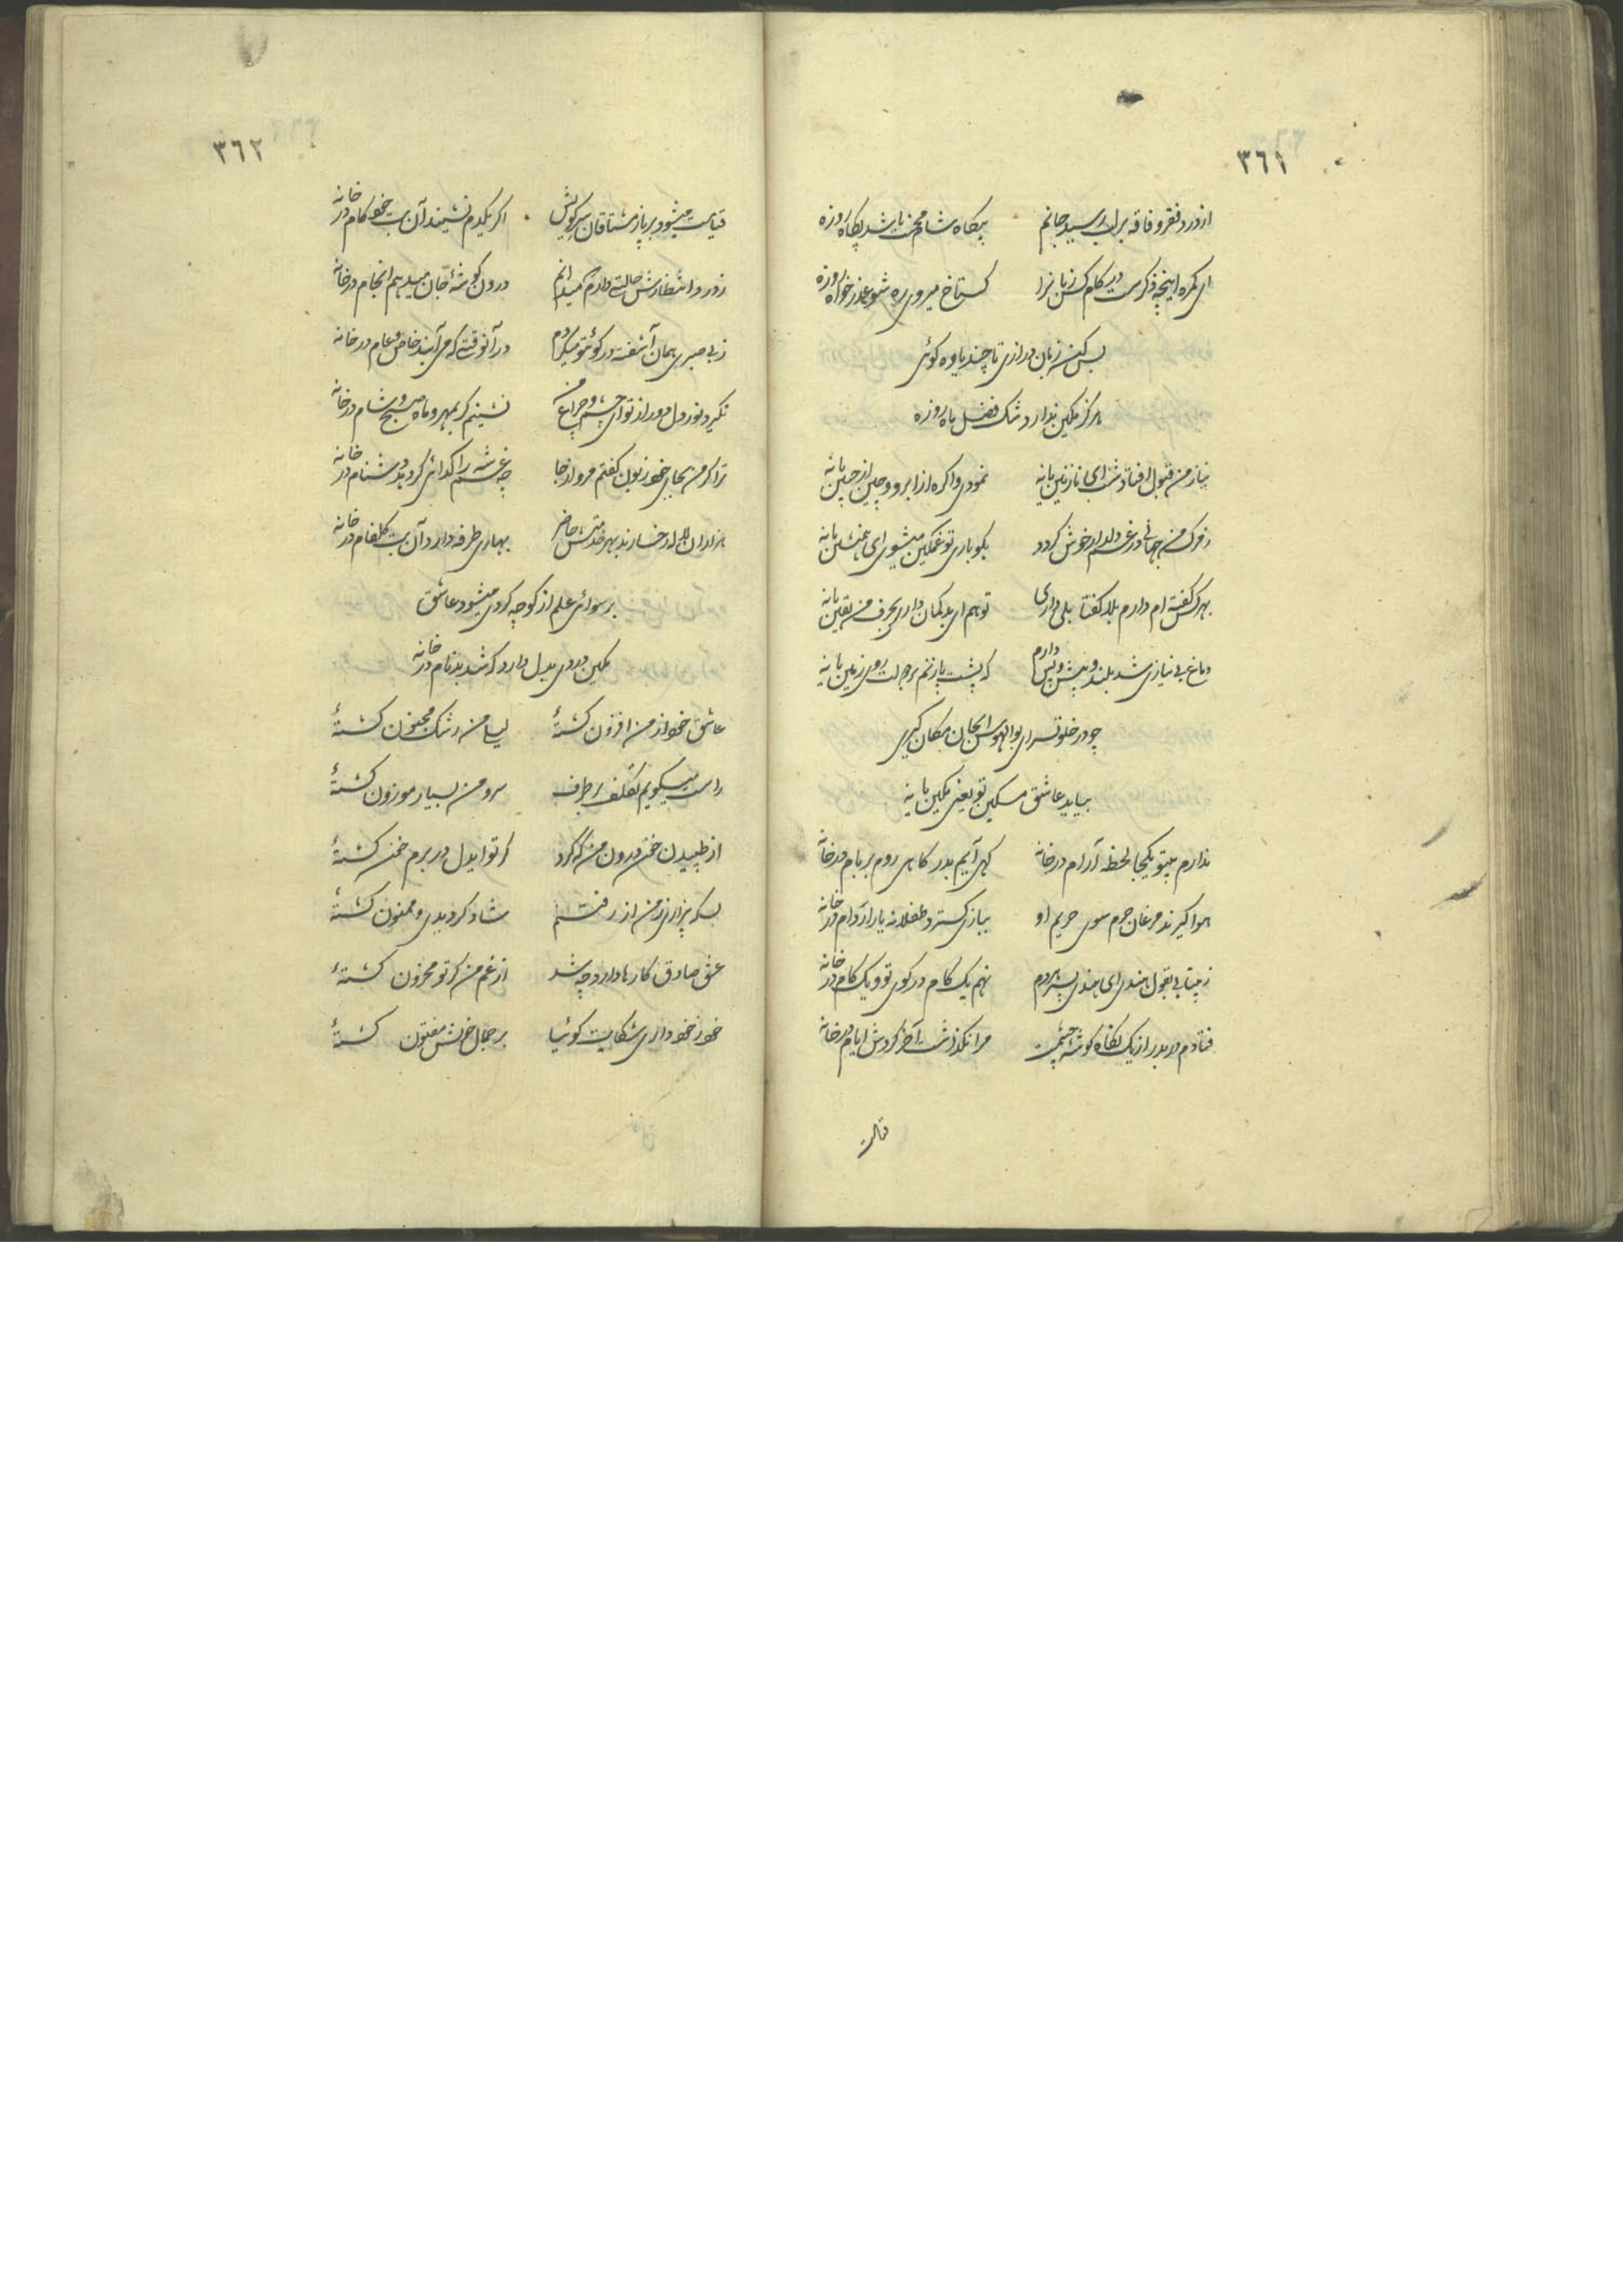 ٣٦١
از درد فقر و فاقه بر لب رسید جانم بیگاه شام محنت باشد پگاه روزه
ای گمره اینچه ذکرست در کام کش زبانرا گستاخ میروی ره شو عذر خواه روزه
بس کن زبان درازی تا چند یاوه گوئی
هرگز مکین ندارد شک فضل ماه روزه
نیاز من قبول افتاد شد ای نازنین یا نه نمودی وا گره از ابرو و چین از جبین یا نه
ز مرگ من جهانی در غم دلدار خوش گردد بگو باری تو غمگین میشوی ای همنشین یا نه
بهر کس گفته ام دارم بلا گفتا بلی داری تو هم ای بدگمان داری بحرف من یقین یا نه
دماغ بی نیازی شد بلند و پیش و پس دارم که پشت پا زنم بر دولت روی زمین یا نه
چو در خلوتسرای بوالهوس ایجان مکان گیری
بیاید عاشق مسکین تو یعنی مکین یا نه
ندارم بیتو یکجا لحظه آرام در خانه گهی آیم بدر گاهی روم بر بام در خانه
هوا گیرند مرغان حرم سوی حریم او ببازی گسترد طفلانه یار ار دام در خانه
ز بیتابی بقول هندی ای هندی پسر مردم نهم یک گام در کوی تو و یک گام در خانه
فتادم در بدر از یک نگاه گوشه چشمت مرا نگذاشت آخر گردش ایام در خانه
٣٦٢
قیامت میشود بر پا ز مشتاقان سر کویش اگر یکدم نشیند آن بت خود کام در خانه
ز درد انتظارش حالتی دارم که میدانم درون گوشه جان میدهم انجام در خانه
ز بی صبری همان آشفته در کوی تو میگردم در آنوقتی که می آیند خاص و عام در خانه
نگیرد نور دل دور از تو ای چشم و چراغ من نشینم گر بمهر و ماه صبح و شام در خانه
ترا گر من بجای خود زبون گفتم مرو از جا چه غم شه را گدائی گر دهد دشنام در خانه
هزاران لاله رخسارند بهر خدمتش حاضر بهاری طرفه دارد آن بت گلفام در خانه
برسوائی علم از کوچه گردی میشود عاشق
مکین دردی بدل دارد که شد بدنام در خانه
عاشق خود از من افزون گشتهٔ لیلی من رشک مجنون گشتهٔ
راست میگویم تکلف بر طرف سرو من بسیار موزون گشتهٔ
از طپیدن خون درون من که کرد گر تو ایدل در برم خون گشتهٔ
بسکه بیزاری ز من از رفتنم شاد گردیدی و ممنون گشتهٔ
عشق صادق کارها دارد چه شد از غم من گر تو محزون گشتهٔ
خود ز خود داری شکایت گوئیا بر جمال خویش مفتون گشتهٔ